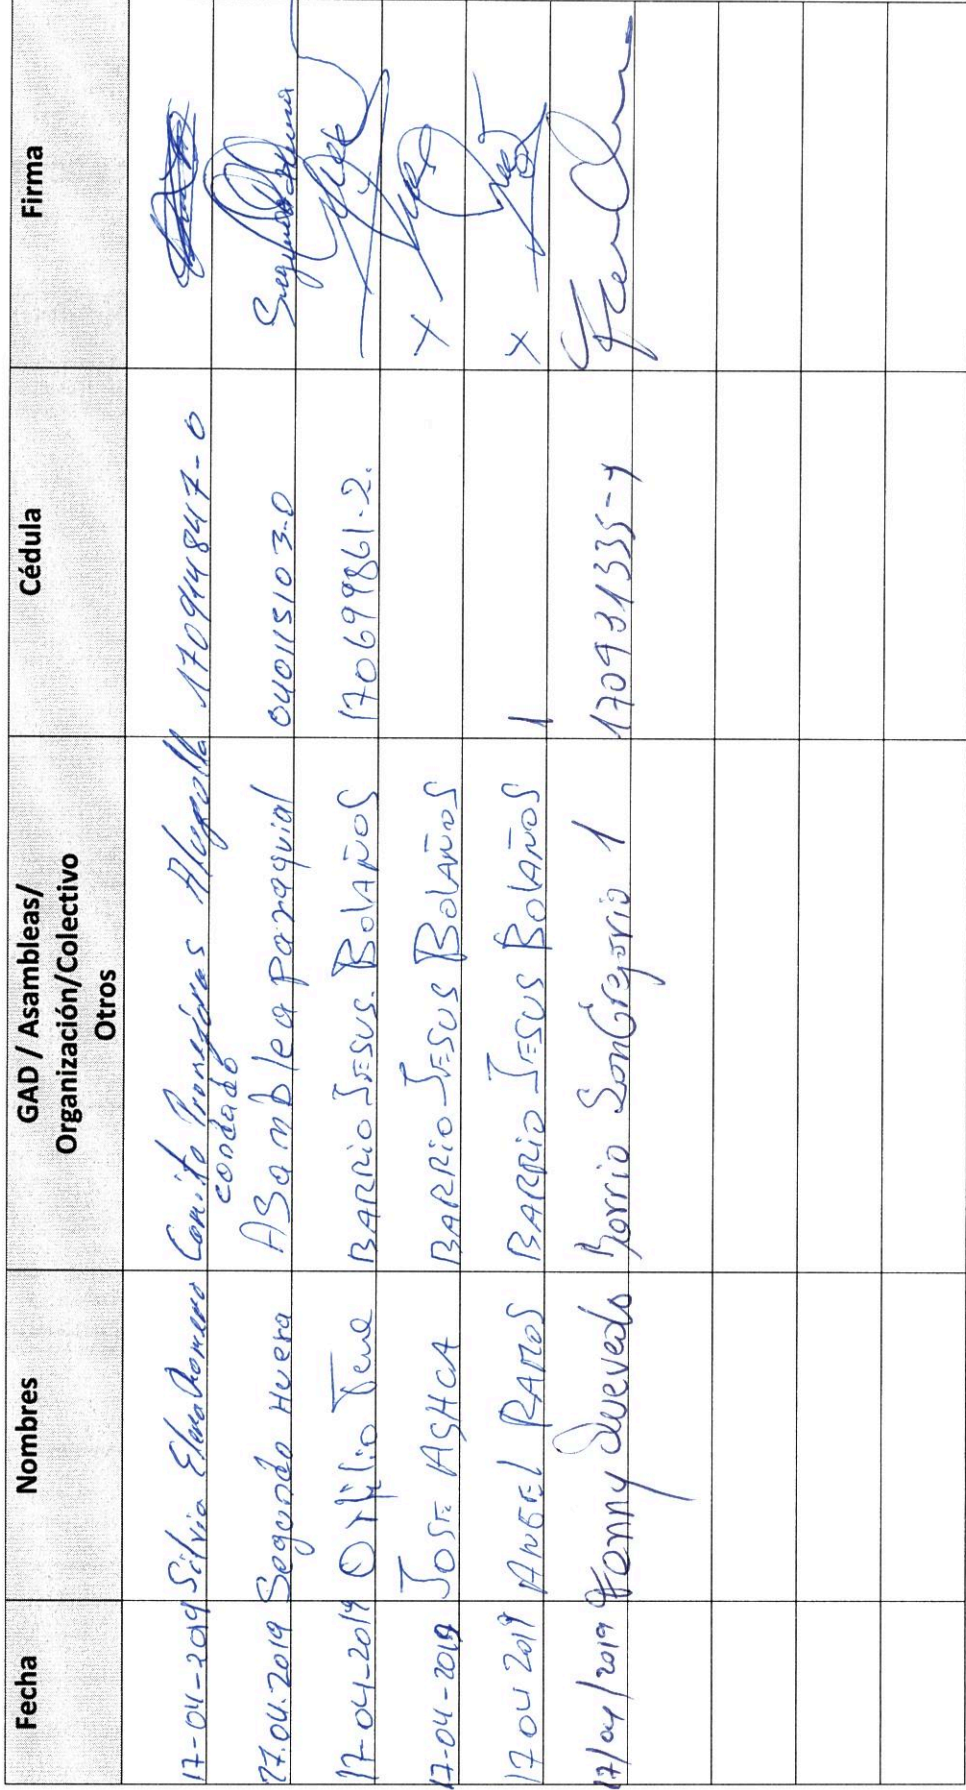 Fecha Nombres GAD / Asambleas/ Cédula Firma
Organización/Colectivo
Otros
17-04-2019 Silvia Elena Romero Comite Promejoras 170914847-0
condado
17.04.2019 Segundo Huera ASamblea parroquial 040115103-0
17-04-2019 Tene BARRIO JESUS. BOLAÑOS 170699861-2.
17-04-2019 JOSE ASHCA BARRIO JESUS BOLAÑOS X
17 04 2019 ANGEL RAMOS BARRIO JESUS BOLAÑOS 1 X
17/04/2019 Fanny Quevedo Barrio San Gregorio 1 170931335-